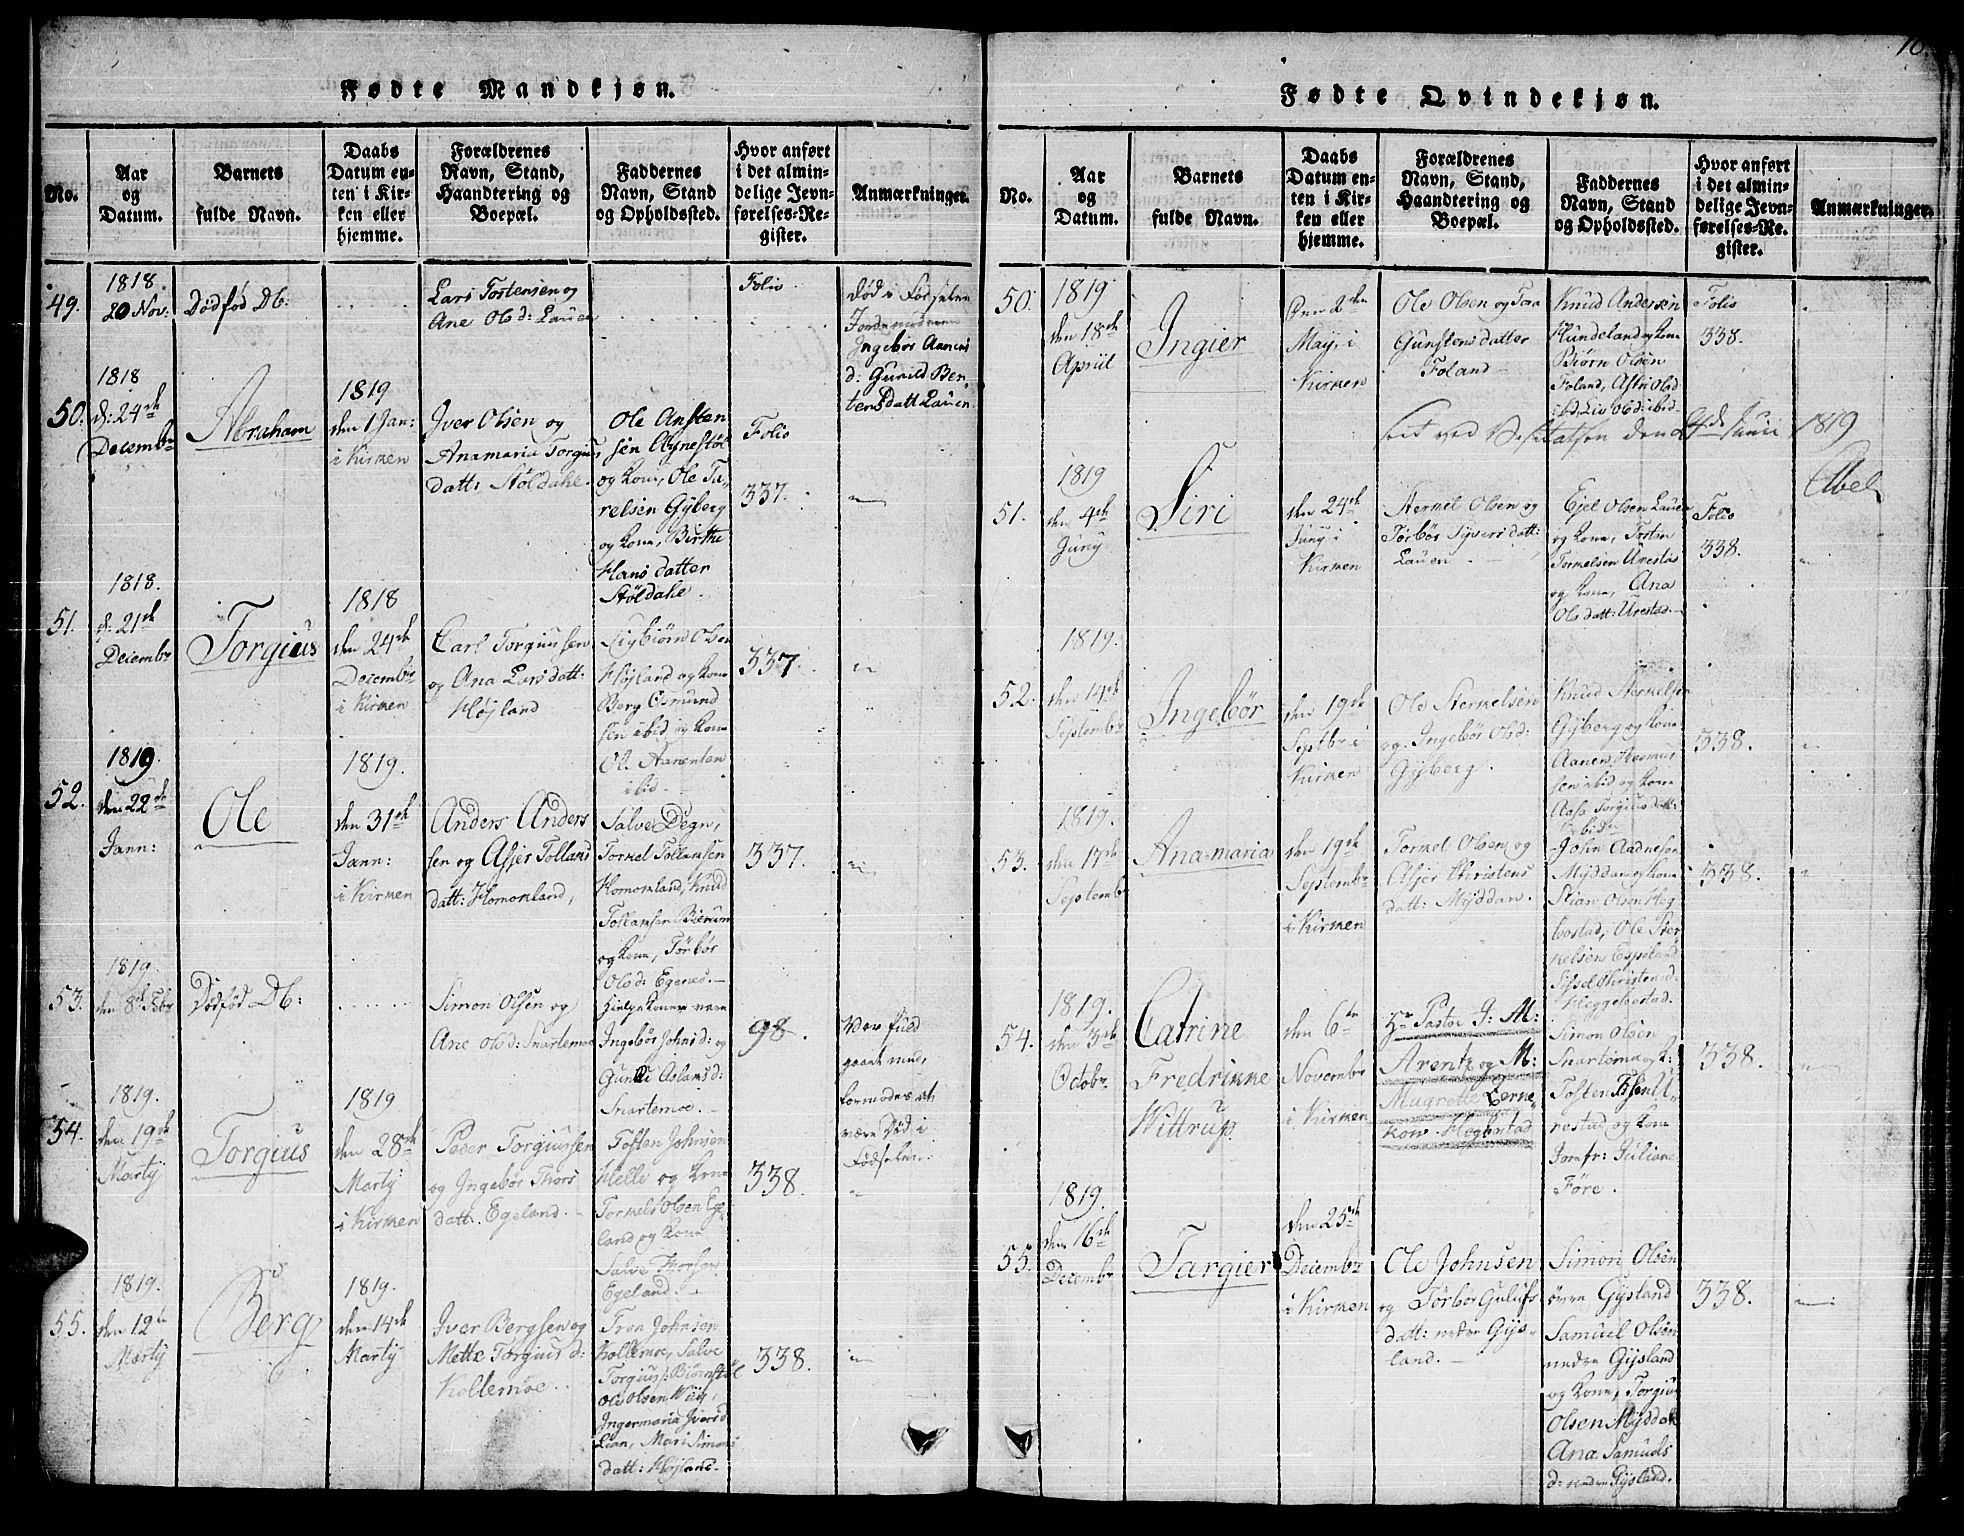 Fødte Mandkjøn.
No.
Aar
og
Datum.
Barnets
fulde Navn.
Daabs
Datum en-
ten i Kir-
ken eller
hjemme.
Forældrenes
Navn, Stand,
Haandtering og
Boepæl.
Faddernes
Navn, Stand
og Opholdssted.
Hvor anført
i det almin-
delige Jevn-
førelses-Re-
gister.
Anmærkninger.
49.
1818.
20 Nov:
Dødfød Db:
Lars Tostensen og
Ane Olsd: Lauen
Folio
Død i Fødselen
Jordemoderen
Ingebør Aanens
d: Gunild Ben-
tensdatt Lauen
50.
1818
d: 24de
Decembr
Abraham
1819
den 1 Jan:
i Kirken
Iver Olsen og
Anamaria Torgius
datt: Støldahl.
Ole Ansten
sen
og Kone, Ole Ta-
relsen Gyberg
og Kone, Birthe
Hans datter
Støldahl.
Folio
337.
51.
1818.
d: 21de
Decembr
Torgius
1818
den 24de
Decembr
i Kirken
Carl Torgiussen
og Ana Lars datt:
Højland
Sigbiørn Olsen
Højland og Kone
Berg Osmund
sen ibid og Kone
Ol. Aanensen
ibid.
337.
52.
1819
den 22de
Jann:
Ole
1819.
den 31de
Jann:
i Kirken
Anders Anders
sen og Asjer Tollaus
datt: Homomland,
Salve Degn,
Tormel Tollamsen
Homomland, Knud
Tollamsen Bierum
og Kone, Tørbør
Olsd: Egenes.
337.
53.
1819.
den 8de Febr
Dødfød Db:
Simon Olsen og
Ane Olsd: Snartemoe
Hielpekoner vare
Ingebør Johnsd: og
Aslamsd:
Snartemoe.
98.
Var fuld
gaaet med,
formodes at
være Død i
Fødselen.
54.
1819.
den 19de
Martij
Torgius
1819
den 28de
Martij
i Kirken
Peder Torgiussen
og Ingebør Thors
datt: Egeland.
Tosten Johnsen
Helle og Kone
Tormel Olsen Ege
land og Kone
Salve Thorsen
Egeland.
338.
55.
1819.
den 12te
Martij
Berg
1819.
den 14de
Martij
Iver Bergsen og
Mette Torgius d:
Kollemoe.
Tron Johnsen
Kollemoe, Salve
Torgius: Biørnstøl
Ole Olsen
Ingermaria Iversd
Lian, Mari Simons
datt: Højland.
338.
Fødte Qvindekjøn.
No.
Aar
og
Datum.
Barnets
fulde Navn.
Daabs
Datum en-
ten i Kir-
ken eller
hjemme.
Forældrenes
Navn, Stand,
Haandtering og
Boepæl.
Faddernes
Navn, Stand
og Opholdssted.
Hvor anført
i det almin-
delige Jevn-
førelses-Re-
gister.
Anmærkninger.
50.
1819
den 18de
Apriil
Ingier
Den 2den
May i
Kirken
Ole Olsen og Tora
Gunstens datter
Foland
Knud Andersen
Hundeland og Kone
Biørn Olsen
Foland, Olsd
ibd. Liv Olsd: ibid
Folio
338.
den 4de Junii 1819
Abel
51.
1819
den 4de
Juny
Siri
den 24de
Juny i
Kirken
Stermel Olsen og
Tørbør Syvers datt:
Lauen
Ejel Olsen Lauen
og Kone, Tosten
Tormelsen Urestad
og Kone, Ana
Ols datt: Urestad.
Folio
338.
52.
1819.
den 14de
Septembr
Ingebør
den 19de
Septbr i
Kirken
Ole Stermelsen
og Ingebør Olsd:
Gyberg.
Knud Stermelsen
Gyberg og Kone
Aanen Rasmus
sen ibid og Kone
Aasa Torgius datt:
ibid.
338.
53.
1819.
den 17de
Septembr
Ana-maria
den 19de
Septembr
i Kirken
Tormel Olsen og
Asjer Christens
datt: Myddan.
John Aadnesen
Myddan og Kone
Stian Olsen Heg-
bostad, Ole Ster
kelsen Espeland
Sissel Christensd:
Heggebostad.
338.
54.
1819.
den 3de
Octobr
Catrine
Fredrikke
Wittrup
den 6te
Novembr
i Kirken
Hr Pastor J: M:
Arentz og M:
Magrette Lerne-
kow Hegbostad
Simon Olsen
Snartemo og K:
Tosten U-
restad og Kone
Jomfr: Juliane
Føre.
338.
55.
1819.
den 16de
Decembr
Targier
den 25de
Decembr
i Kirken
Ole Johnsen
og Tørbør Gulufs
datt: nedre Gys-
land.
Simon Olsen
øvre Gysland
Samuel Olsen
nedre Gysland
og Kone, Torgius
Olsen Myddan
Ana Samuels
d: nedre Gysland.
338.